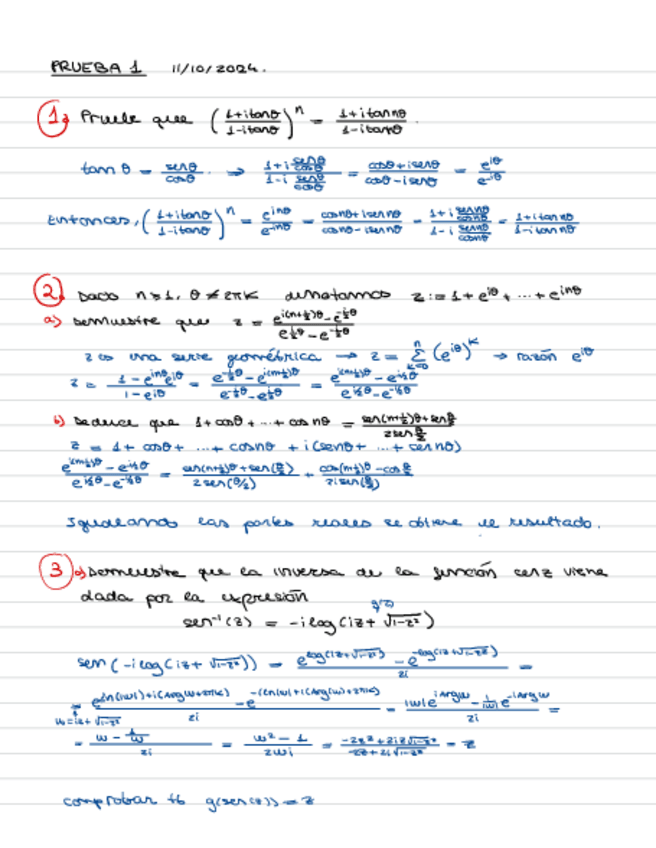 PRUEBA 1 11/10/2024.
1) Pruebe que ((1+itanθ)/(1-itanθ))^n = (1+itan nθ)/(1-itan nθ).
tan θ = senθ/cosθ → (1+i senθ/cosθ)/(1-i senθ/cosθ) = (cosθ+isenθ)/(cosθ-isenθ) = e^{iθ}/e^{-iθ}
Entonces, ((1+itanθ)/(1-itanθ))^n = e^{inθ}/e^{-inθ} = (cosnθ+isen nθ)/(cosnθ-isen nθ) = (1+i sennθ/cosnθ)/(1-i sennθ/cosnθ) = (1+itan nθ)/(1-itan nθ)
2) Dado n≥1, θ≠2πK denotamos z:=1+e^{iθ}+...+e^{inθ}
a) Demuestre que z = (e^{i(n+½)θ}-e^{-i½θ})/(e^{i½θ}-e^{-i½θ})
z es una serie geométrica → z = Σ_{k=0}^{n} (e^{iθ})^k → razón e^{iθ}
z = (1-e^{inθ}e^{iθ})/(1-e^{iθ}) = (e^{-i½θ}-e^{i(n+½)θ})/(e^{-i½θ}-e^{i½θ}) = (e^{i(n+½)θ}-e^{-i½θ})/(e^{i½θ}-e^{-i½θ})
b) Deduce que 1+cosθ+...+cos nθ = (sen(n+½)θ+sen θ/2)/(2sen θ/2)
z = 1+ cosθ+ ...+cosnθ +i(senθ+ ...+sen nθ)
(e^{i(n+½)θ}-e^{-i½θ})/(e^{i½θ}-e^{-i½θ}) = (sen(n+½)θ+sen(θ/2))/(2sen(θ/2)) + (cos(n+½)θ-cos θ/2)/(2isen(θ/2))
Igualando las partes reales se obtiene el resultado.
3) a) Demuestre que la inversa de la función senz viene
dada por la expresión
g(z)
sen⁻¹(z) = -ilog(iz+√(1-z²))
sen(-ilog(iz+√(1-z²))) = (e^{log(iz+√(1-z²))}-e^{-log(iz+√(1-z²))})/2i =
= (e^{ln(|w|)+i(Argw+2πk)}-e^{-(ln|w|+i(Arg(w)+2πk))})/2i = (|w|e^{iArgw}-1/|w| e^{-iArgw})/2i =
w=iz+√(1-z²)
= (w-1/w)/2i = (w²-1)/2wi = (-2z²+2iz√(1-z²))/(-2z+2i√(1-z²)) = z
comprobar tb g(sen(z))=z